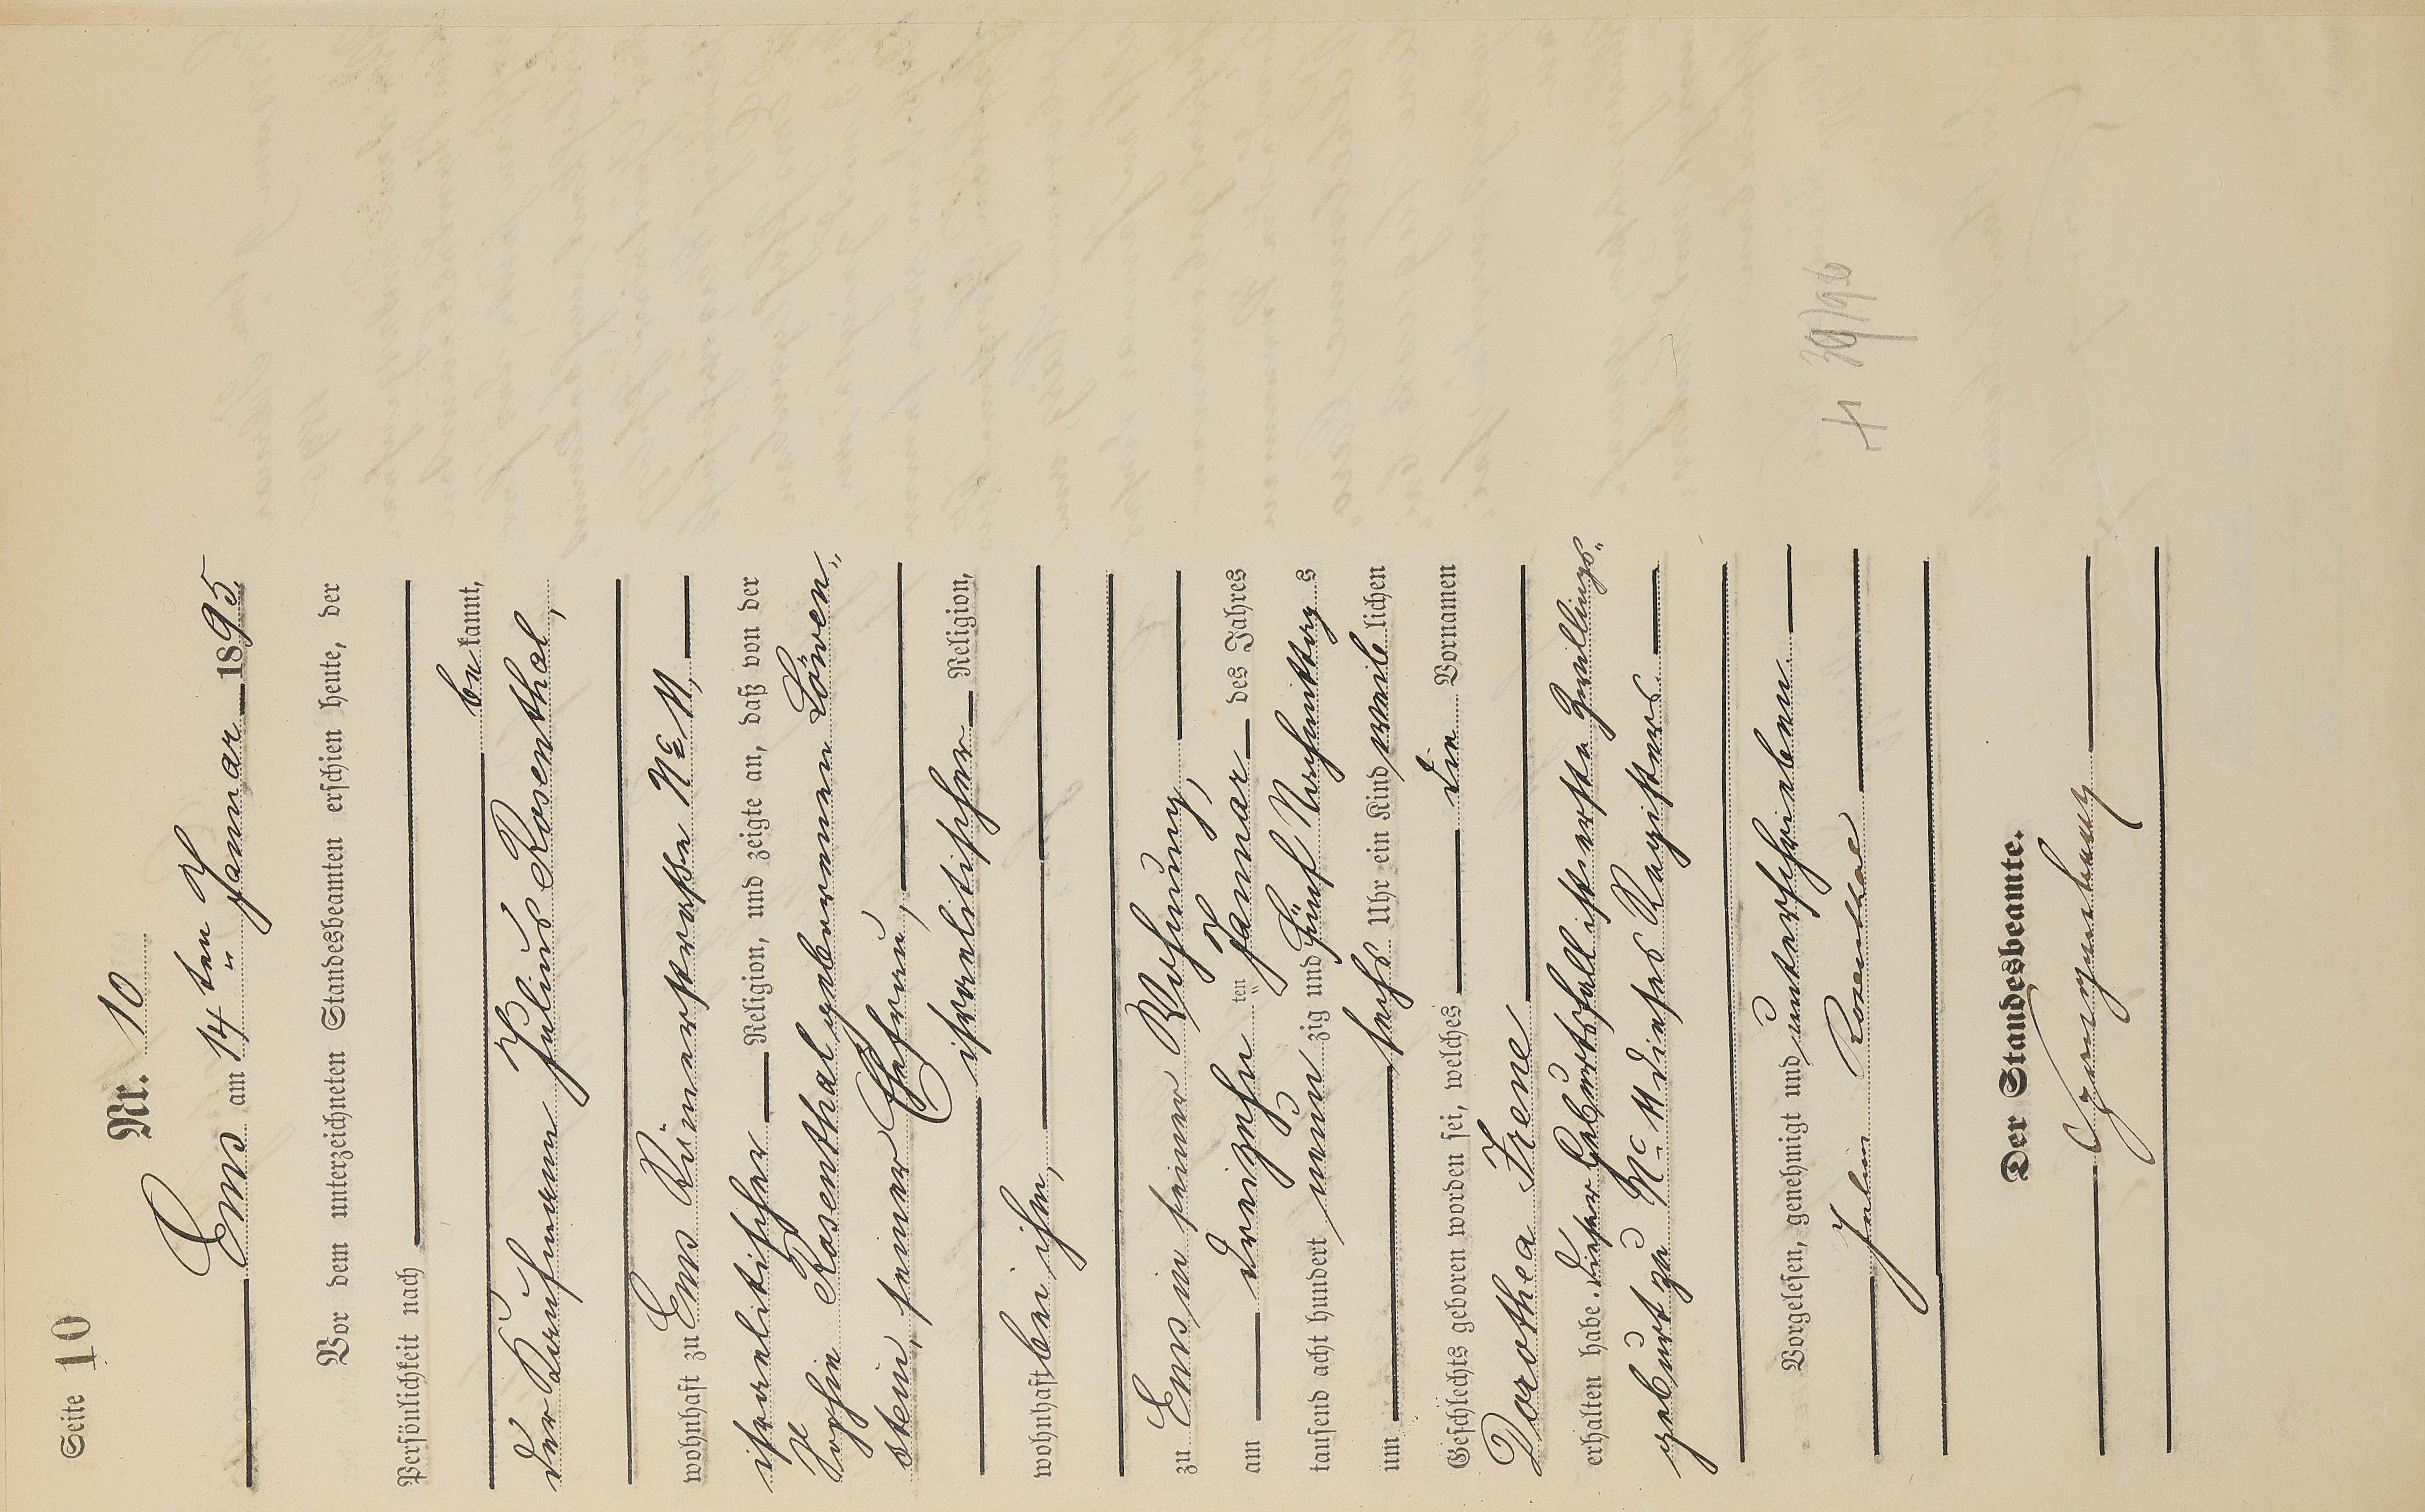 Seite 10
Nr. 10
Ems am 14 ten Januar 1895
Vor dem unterzeichneten Standesbeamten erschien heute, der
Persönlichkeit nach
be kannt,
der Kaufmann Julius Rosenthal,
wohnhaft zu Ems Römerstraße No 11,
israelitischer Religion, und zeigte an, daß von der
Sophie Rosenthal geborenen Löwen„
stein, seiner Ehefrau,
israelitischer Religion,
wohnhaft bei ihm,
zu Ems in seiner Wohnung,
am dreizehn ten Januar des Jahres
tausend acht hundert neun zig und fünf Nachmittag s
um sechs Uhr ein Kind weib lichen
Geschlechts geboren worden sei, welches die Vornamen
Dorothea Irene
erhalten habe. Dieser Geburtsfall ist erste Zwillings„
geburt zu No 11 dieses Registers
Vorgelesen, genehmigt und unterschrieben
Julius Rosenthal
Der Standesbeamte.
+ 39/96